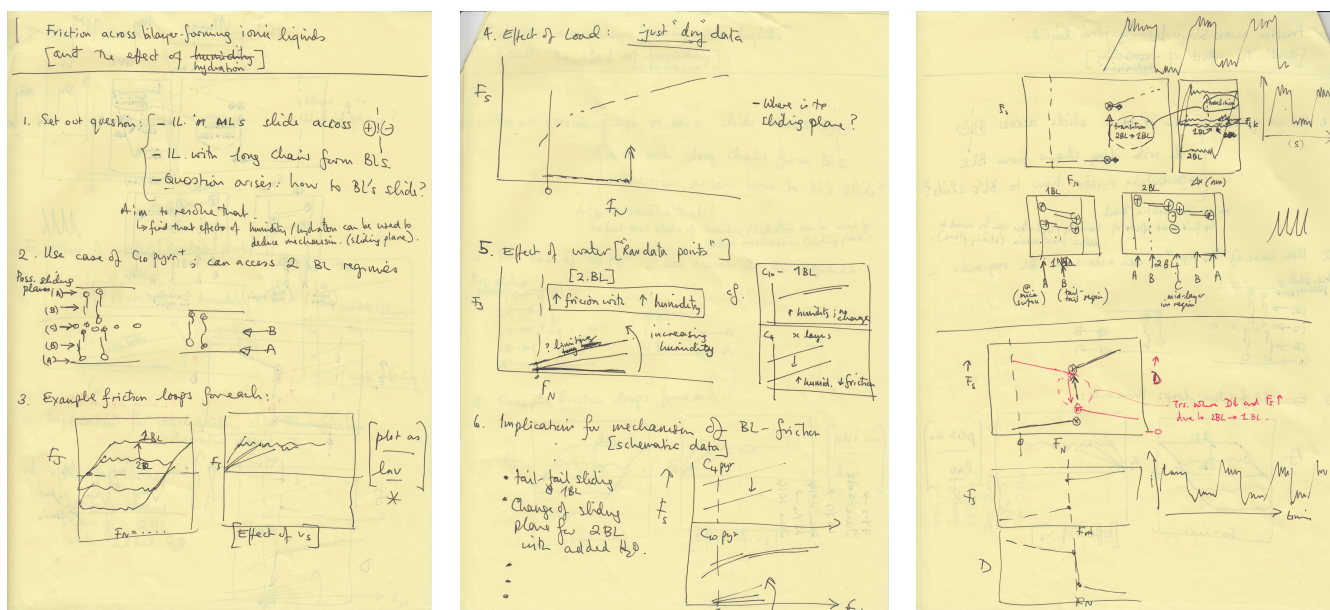 Friction across bilayer-forming ionic liquids
[and the effect of humidity]
hydration
1. Set out question:
- IL in MLs slide across ⊕¦⊖
- IL with long chain form BLs.
- Question arises: how to BL's slide?
Aim to resolve that
↳ find that effects of humidity/hydration can be used to
deduce mechanism. (sliding plane).
2. Use case of C10 pyrr+, can access 2 BL regimes
Poss. sliding
planes
(A)→
(B)→
(C)→
(B)→
(A)→
B
A
3. Example friction loops for each:
Fs
1BL
2BL
FN = .....
Fs
[Effect of vs]
[plot as
lnv]
*
4. Effect of Load: just "dry" data
Fs
FN
- Where is the
sliding plane?
5. Effect of water ["Raw data points"]
[2.BL]
↑ friction with ↑ humidity
Fs
increasing
humidity
FN
cf.
C10 - 1BL
↑ humidity: no
change
C4 x layers
↑ humid. ↓ friction
6. Implication for mechanism of BL-friction
[schematic data]
• tail-tail sliding
@ 1BL
• Change of sliding
plane for 2BL
with added H2O.
Fs
C4 pyr
C10 pyr
Fs
transition
2BL→1BL
FN
transition
1BL
2BL
Fk
Δx (nm)
(s)
1BL
2BL
A
B
A
B
C
B
A
(@
mica
surface)
(tail-
tail region)
mid-layer
ion region
Fs
D
0
FN
Trs. where D↓ and Fs↑
due to 2BL→1BL.
Fs
FN
time
D
FN